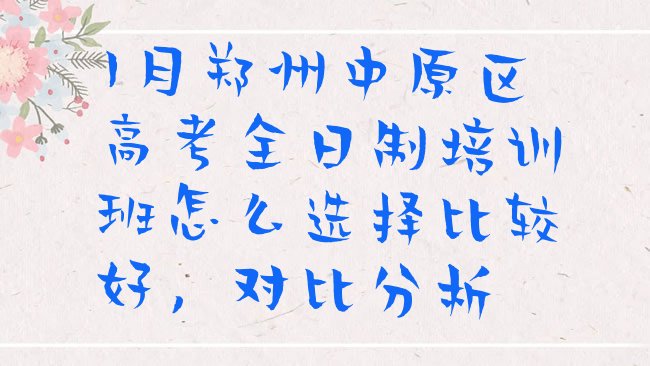 1月郑州中原区
高考全日制培训
班怎么选择比较
好，对比分析